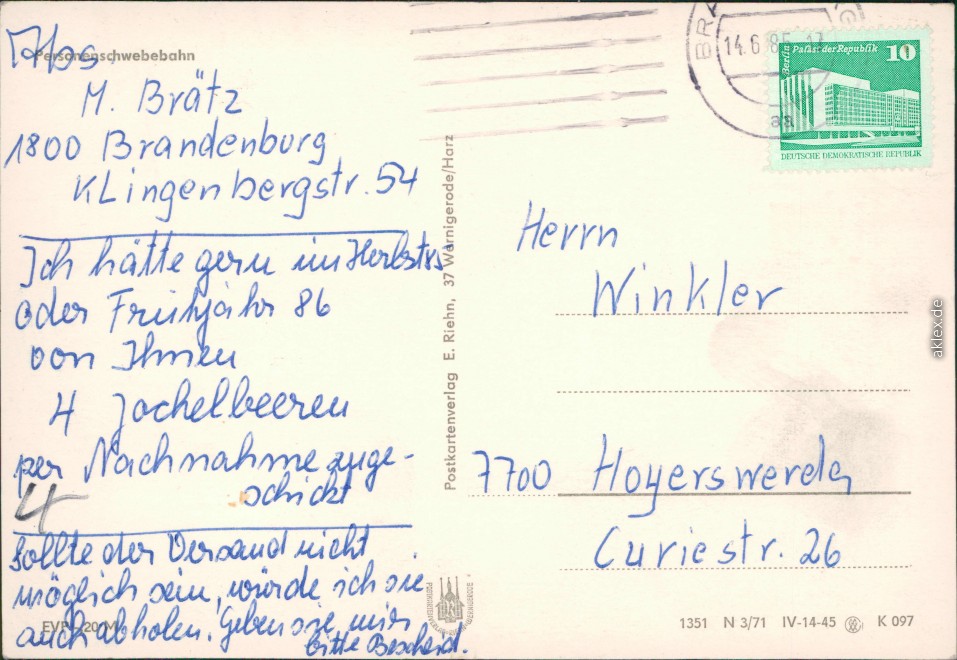 Personenschwebebahn
Abs.
M. Brätz
1800 Brandenburg
Klingenbergstr. 54
Ich hätte gern im Herbst 85
oder Frühjahr 86
von Ihnen
4 Jochelbeeren
per Nachnahme zuge-
schickt
4
Sollte der Versand nicht
möglich sein, würde ich sie
auch abholen. Geben sie mir
bitte Bescheid.
EVP 0,20 M
Postkartenverlag E. Riehn, 37 Wernigerode/Harz
14.6.85-17
aa
Berlin Palast der Republik 10
DEUTSCHE DEMOKRATISCHE REPUBLIK
Herrn
Winkler
7700 Hoyerswerda
Curiestr. 26
1351 N 3/71 IV-14-45 K 097
aklex.de